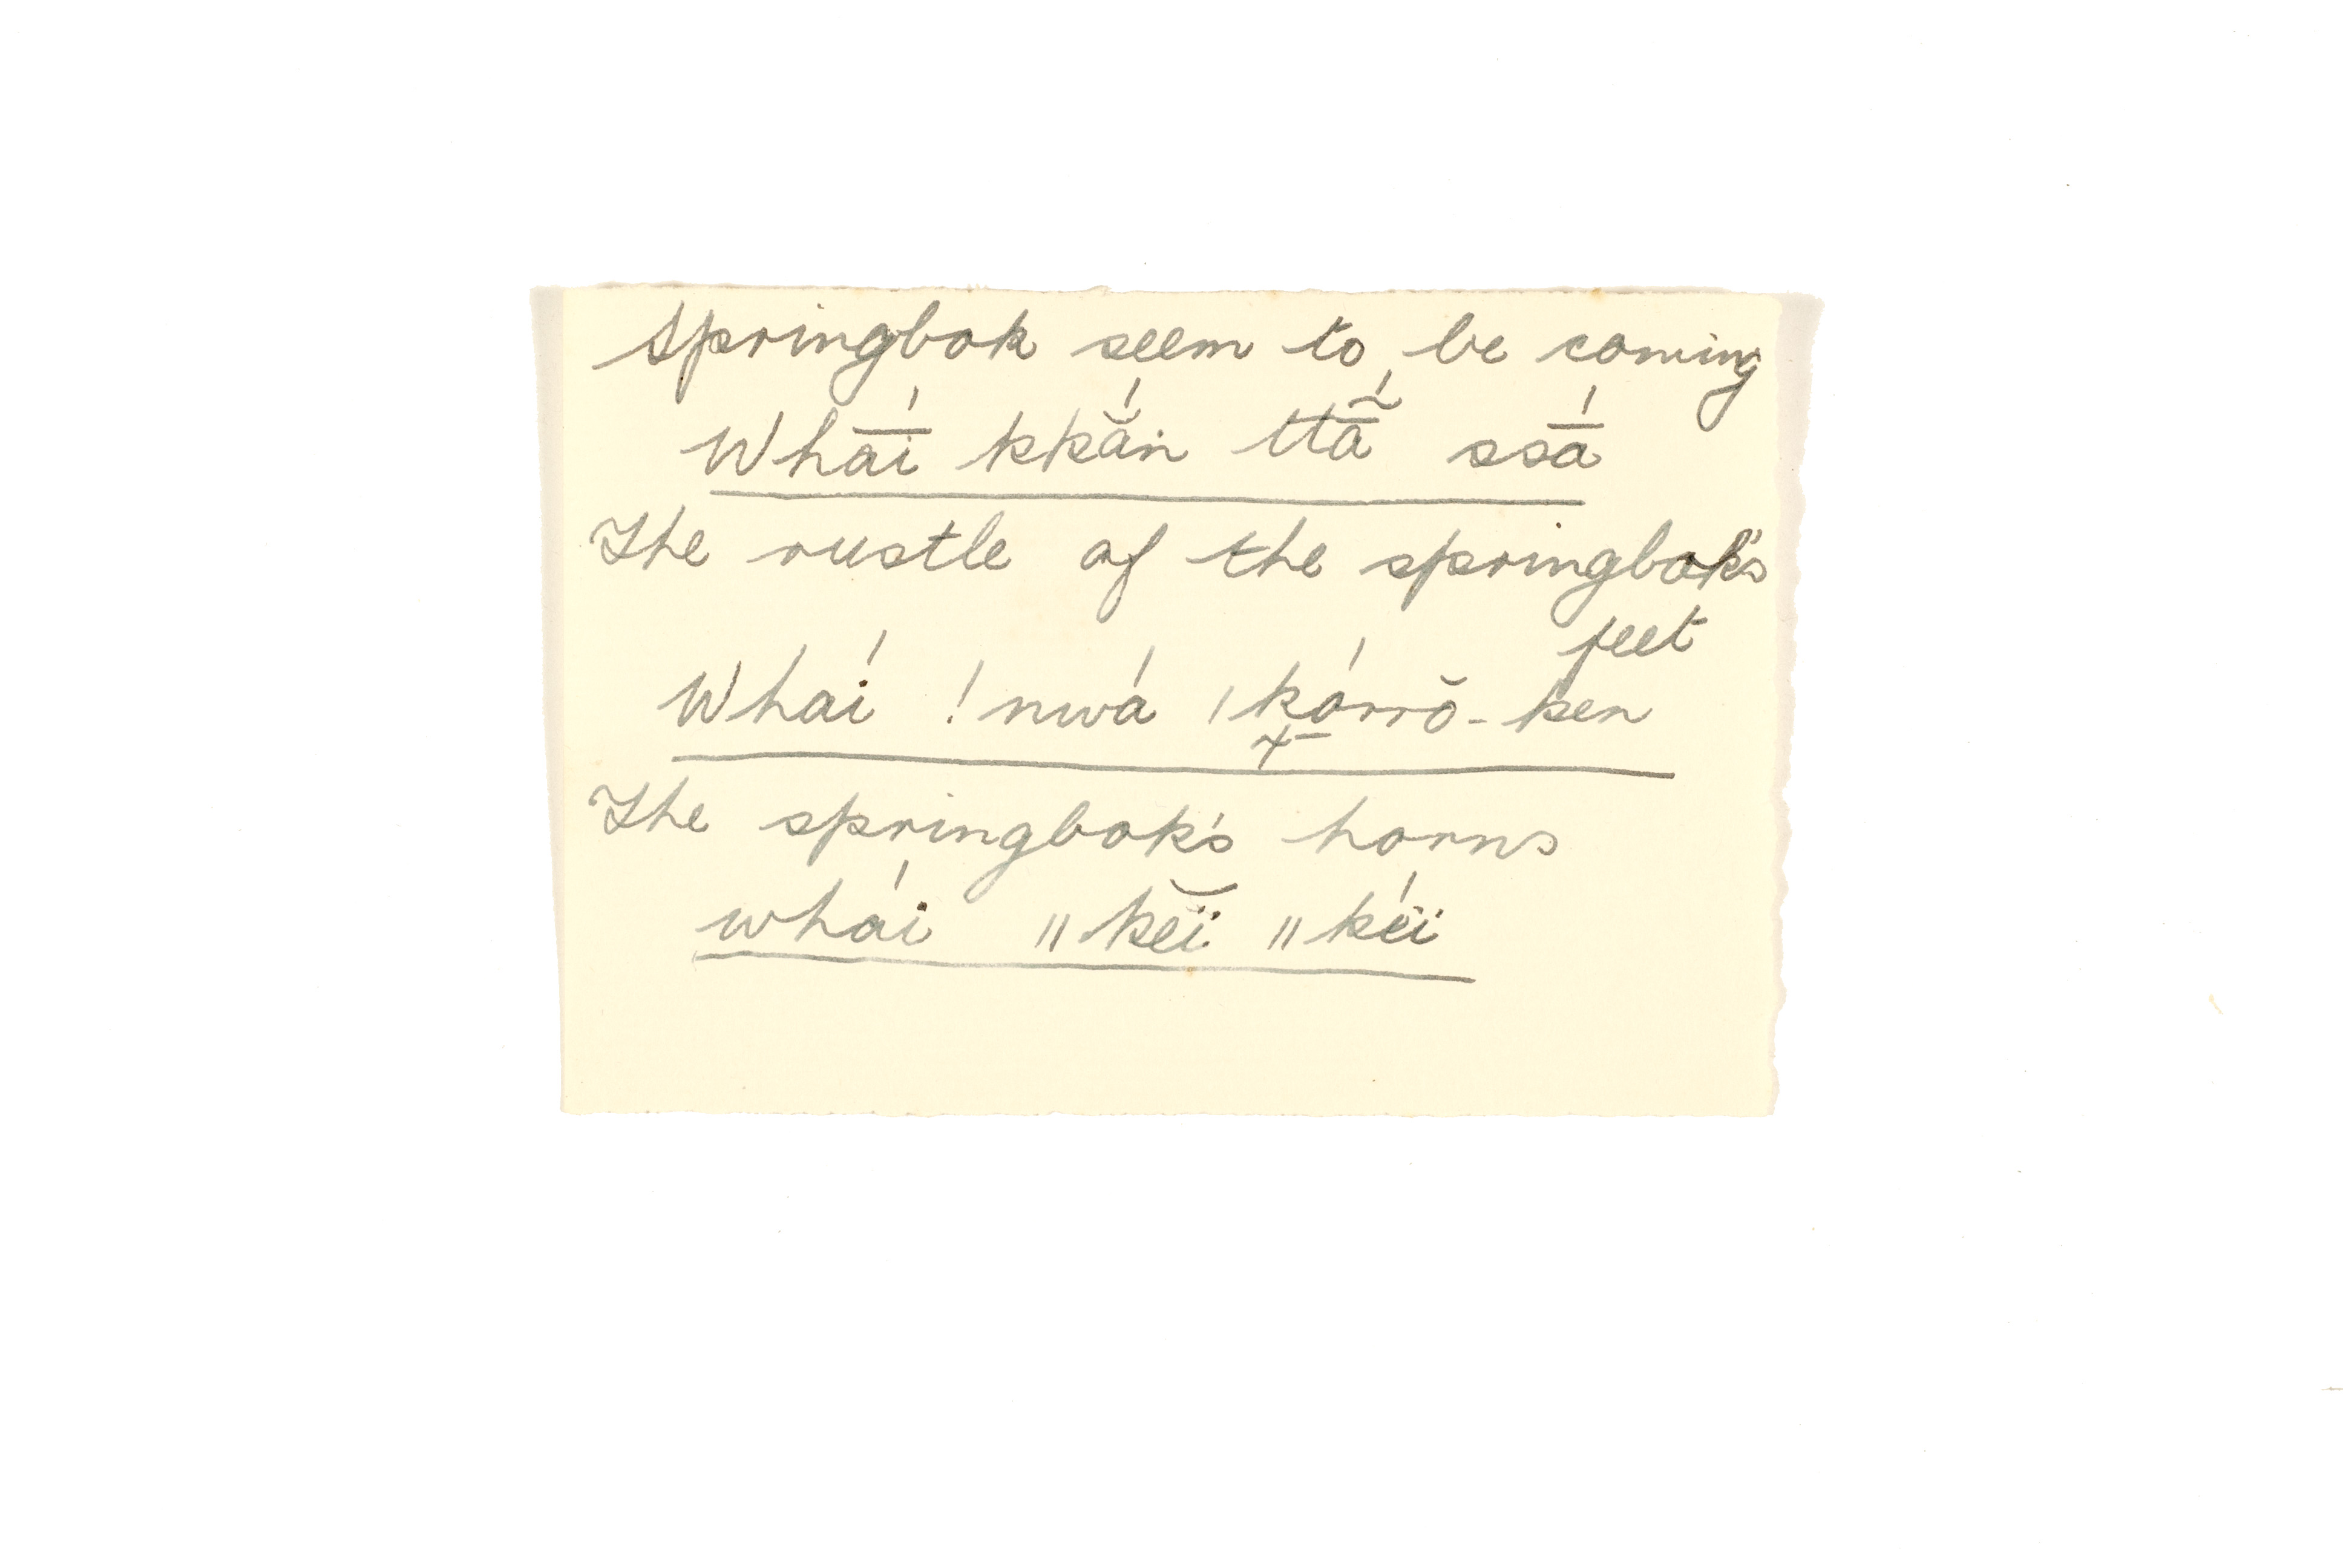 Springbok seem to be coming
Whā́i kkắn ttā̰́ ssā́
The rustle of the springbok's
feet
Whaí !nwá |k̠ó̠rrŏ-ken
The springbok's horns
whái ||kĕĭ̈ ||kéï